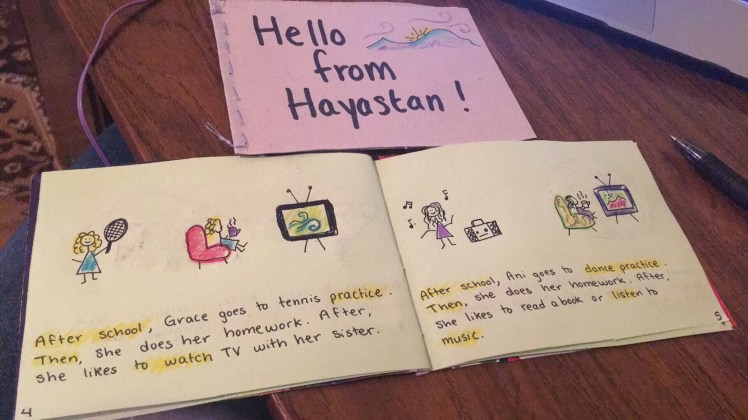 Hello
from
Hayastan!
After school, Grace goes to tennis practice.
Then, she does her homework. After,
she likes to watch TV with her sister.
4
After school, Ani goes to dance practice.
Then, she does her homework. After,
she likes to read a book or listen to
music.
5